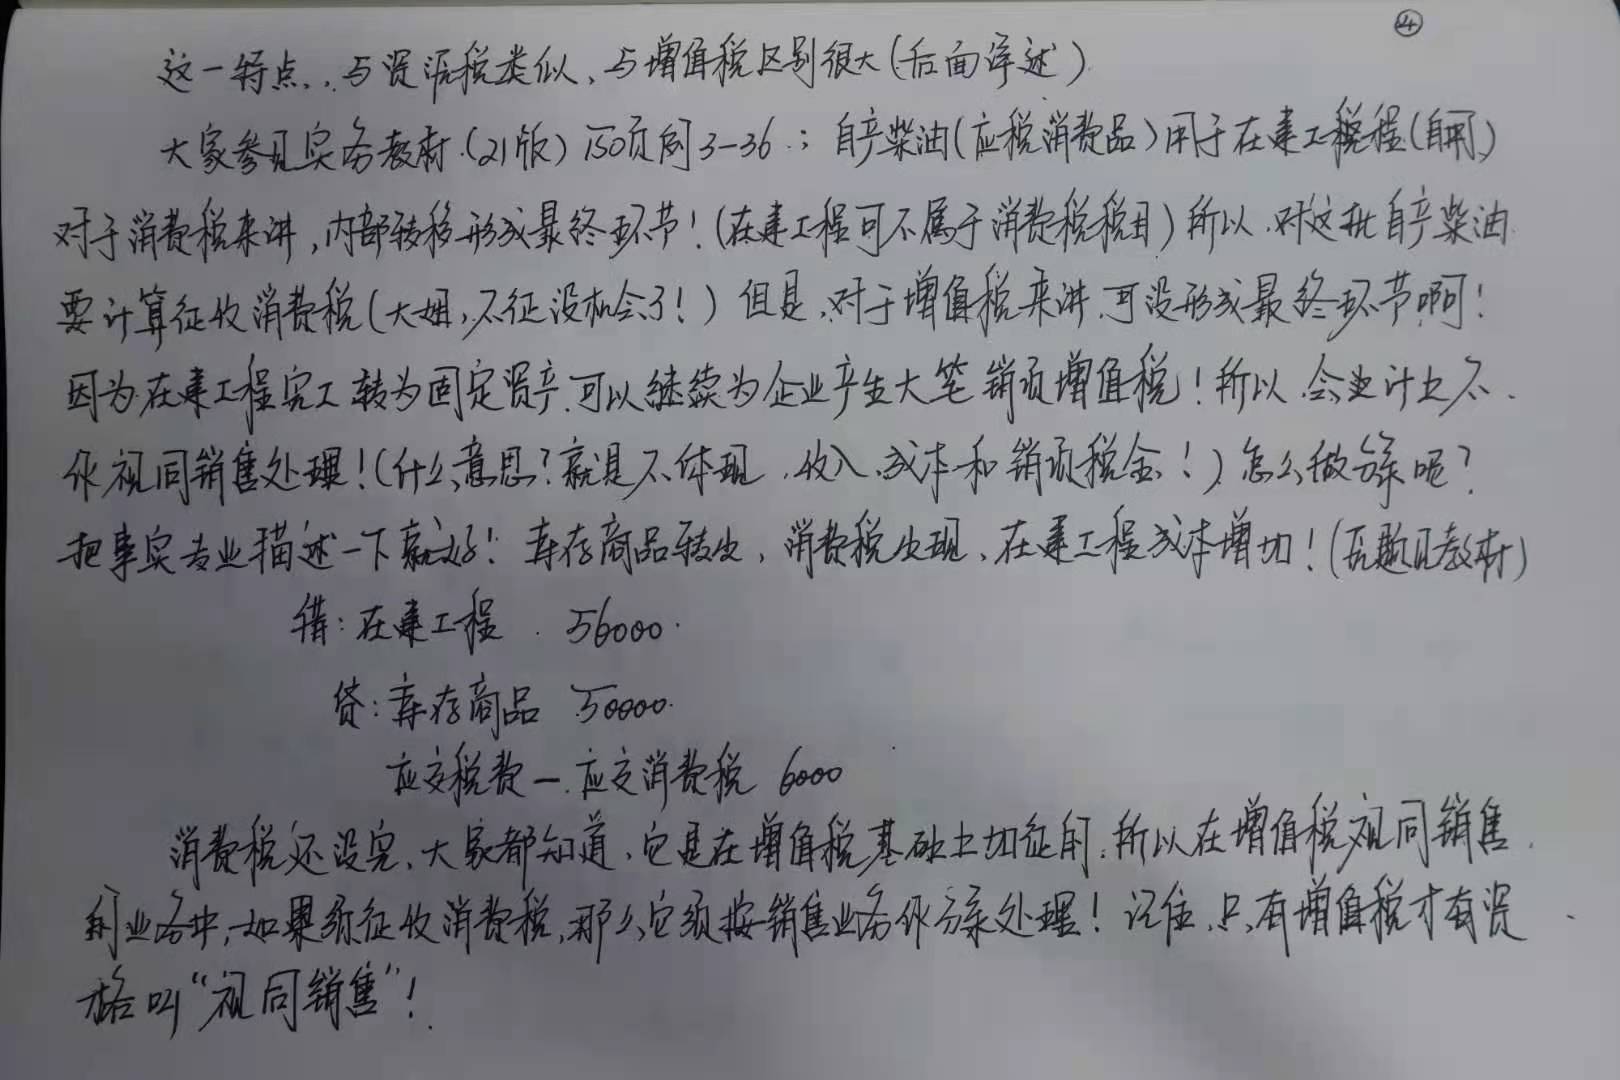 ④
这一特点,与资源税类似、与增值税区别很大(后面详述)
大家参见实务教材(21版)150页例3-36;自产柴油(应税消费品)用于在建工程(自用)
对于消费税来讲,内部转移形成最终环节!(在建工程可不属于消费税税目)所以,对这批自产柴油
要计算征收消费税(大姐,不征没机会了!)但是,对于增值税来讲,可没形成最终环节啊!
因为在建工程完工转为固定资产,可以继续为企业产生大笔销项增值税!所以,会计上不
作视同销售处理!(什么意思?就是不体现,收入、成本和销项税金!)怎么做分录呢?
把事实专业描述一下就好!库存商品转出,消费税出现,在建工程成本增加!(原题见教材)
借:在建工程 56000
贷:库存商品 50000
应交税费—应交消费税 6000
消费税还没完,大家都知道,它是在增值税基础上加征的,所以在增值税视同销售
业务中,如果须征收消费税,那么它须按销售业务作分录处理!记住,只有增值税才有资
格叫“视同销售”!